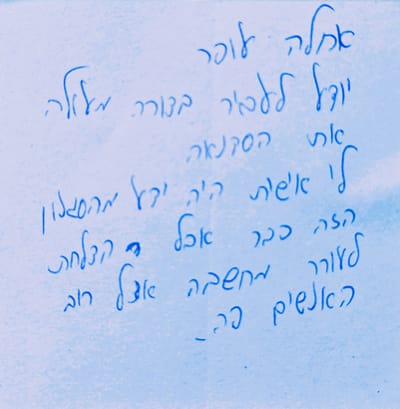 אחלה עופר
יודע להעביר בצורה מעולה
את הסדנאה
לי אישית היה ידע מהסגנון
הזה כבר אבל הצלחת
לעורר מחשבה אצל רוב
האנשים פה.